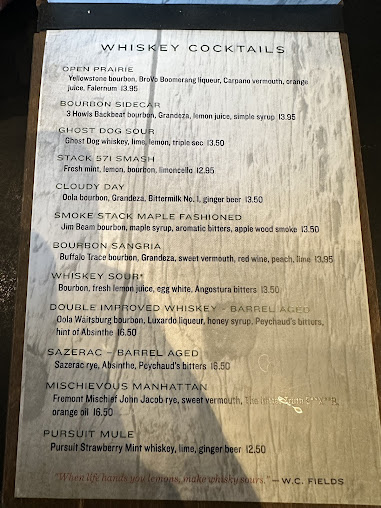 WHISKEY COCKTAILS
OPEN PRAIRIE
Yellowstone bourbon, BroVo Boomerang liqueur, Carpano vermouth, orange
juice, Falernum 13.95
BOURBON SIDECAR
3 Howls Backbeat bourbon, Grandeza, lemon juice, simple syrup 13.95
GHOST DOG SOUR
Ghost Dog whiskey, lime, lemon, triple sec 13.50
STACK 571 SMASH
Fresh mint, lemon, bourbon, limoncello 12.95
CLOUDY DAY
Oola bourbon, Grandeza, Bittermilk No. 1, ginger beer 13.50
SMOKE STACK MAPLE FASHIONED
Jim Beam bourbon, maple syrup, aromatic bitters, apple wood smoke 13.50
BOURBON SANGRIA
Buffalo Trace bourbon, Grandeza, sweet vermouth, red wine, peach, lime 13.95
WHISKEY SOUR*
Bourbon, fresh lemon juice, egg white, Angostura bitters 13.50
DOUBLE IMPROVED WHISKEY – BARREL AGED
Oola Waitsburg bourbon, Luxardo liqueur, honey syrup, Peychaud's bitters,
hint of Absinthe 16.50
SAZERAC – BARREL AGED
Sazerac rye, Absinthe, Peychaud's bitters 16.50
MISCHIEVOUS MANHATTAN
Fremont Mischief John Jacob rye, sweet vermouth, The
orange oil 16.50
PURSUIT MULE
Pursuit Strawberry Mint whiskey, lime, ginger beer 12.50
"When life hands you lemons, make whisky sours." — W.C. FIELDS